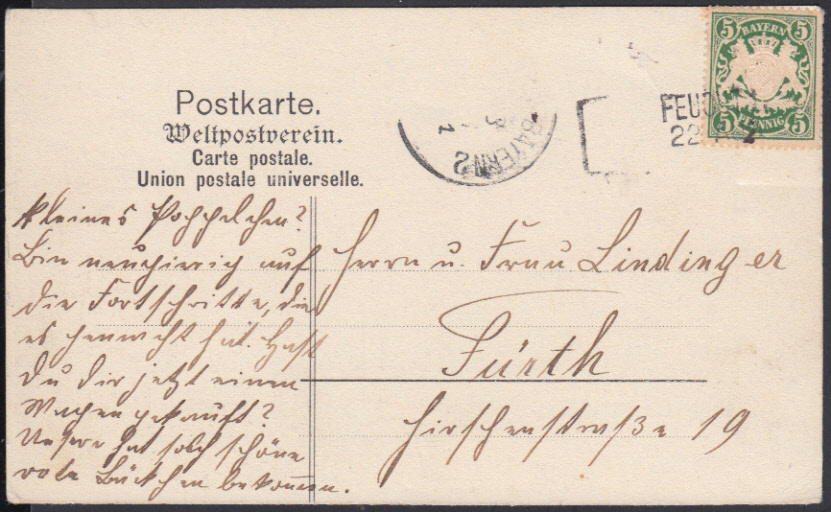 5 BAYERN 5
5 PFENNIG 5
FEUCH
22
BAYERN 2
Postkarte.
Weltpostverein.
Carte postale.
Union postale universelle.
kleines Poppelchen?
Bin neugierig auf
die Fortschritte, die
es gemacht hat. Hast
Du Dir jetzt einen
Wagen gekauft?
Unsere hat solch schöne
rote Bäckchen bekommen.
Herrn u. Frau Lindinger
Fürth
Hirschenstraße 19